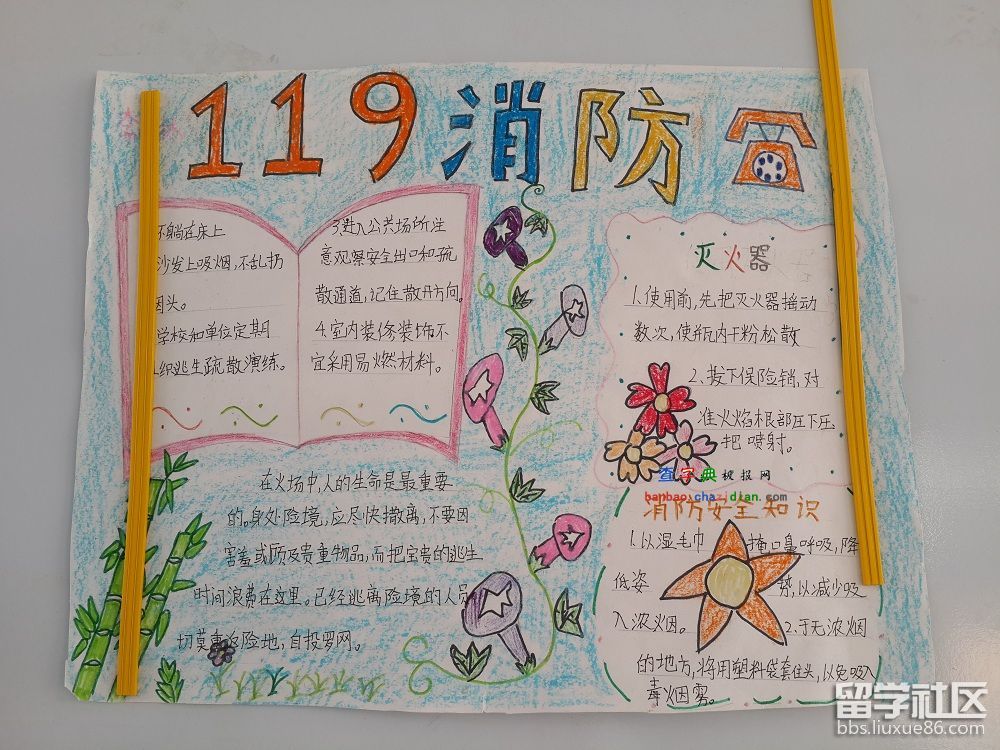 119消防
不躺在床上
沙发上吸烟，不乱扔
因头。
学校和单位定期
织逃生疏散演练。
3进入公共场所注
意观察安全出口和疏
散通道，记住散开方向。
4.室内装修装饰不
宜采用易燃材料。
灭火器
1.使用前，先把灭火器摇动
数次，使瓶内干粉松散
2、拔下保险销，对
准火焰根部压下压
把 喷射。
查字典板报网
banbao.chazidian.com
在火场中，人的生命是最重要
的。身处险境，应尽快撤离，不要因
害羞或顾及贵重物品，而把宝贵的逃生
时间浪费在这里。已经逃离险境的人员
切莫重返险地，自投罗网。
消防安全知识
1.以湿毛巾 掩口鼻呼吸，降
低姿 势，以减少吸
入浓烟。 2、于无浓烟
的地方，将用塑料袋套住头，以免吸入
毒烟雾。
留学社区
bbs.liuxue86.com